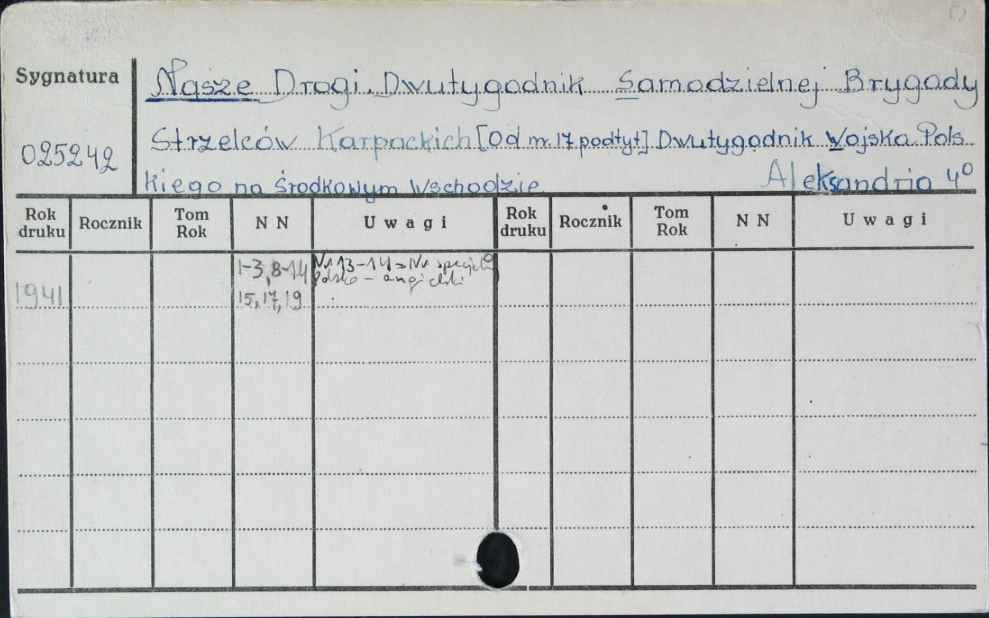 Sygnatura
Nasze Drogi. Dwutygodnik Samodzielnej Brygady
025242
Strzelców Karpackich [Od nr. 17 podtyt] Dwutygodnik Wojska Pols
kiego na środkowym Wschodzie
Aleksandria 4°
Rok druku Rocznik Tom Rok N N Uwagi Rok druku Rocznik Tom Rok N N Uwagi
1-3, 8-14 Nr 13-14 = Nr specjal
1941 15, 17, 19 Polsko - angielski